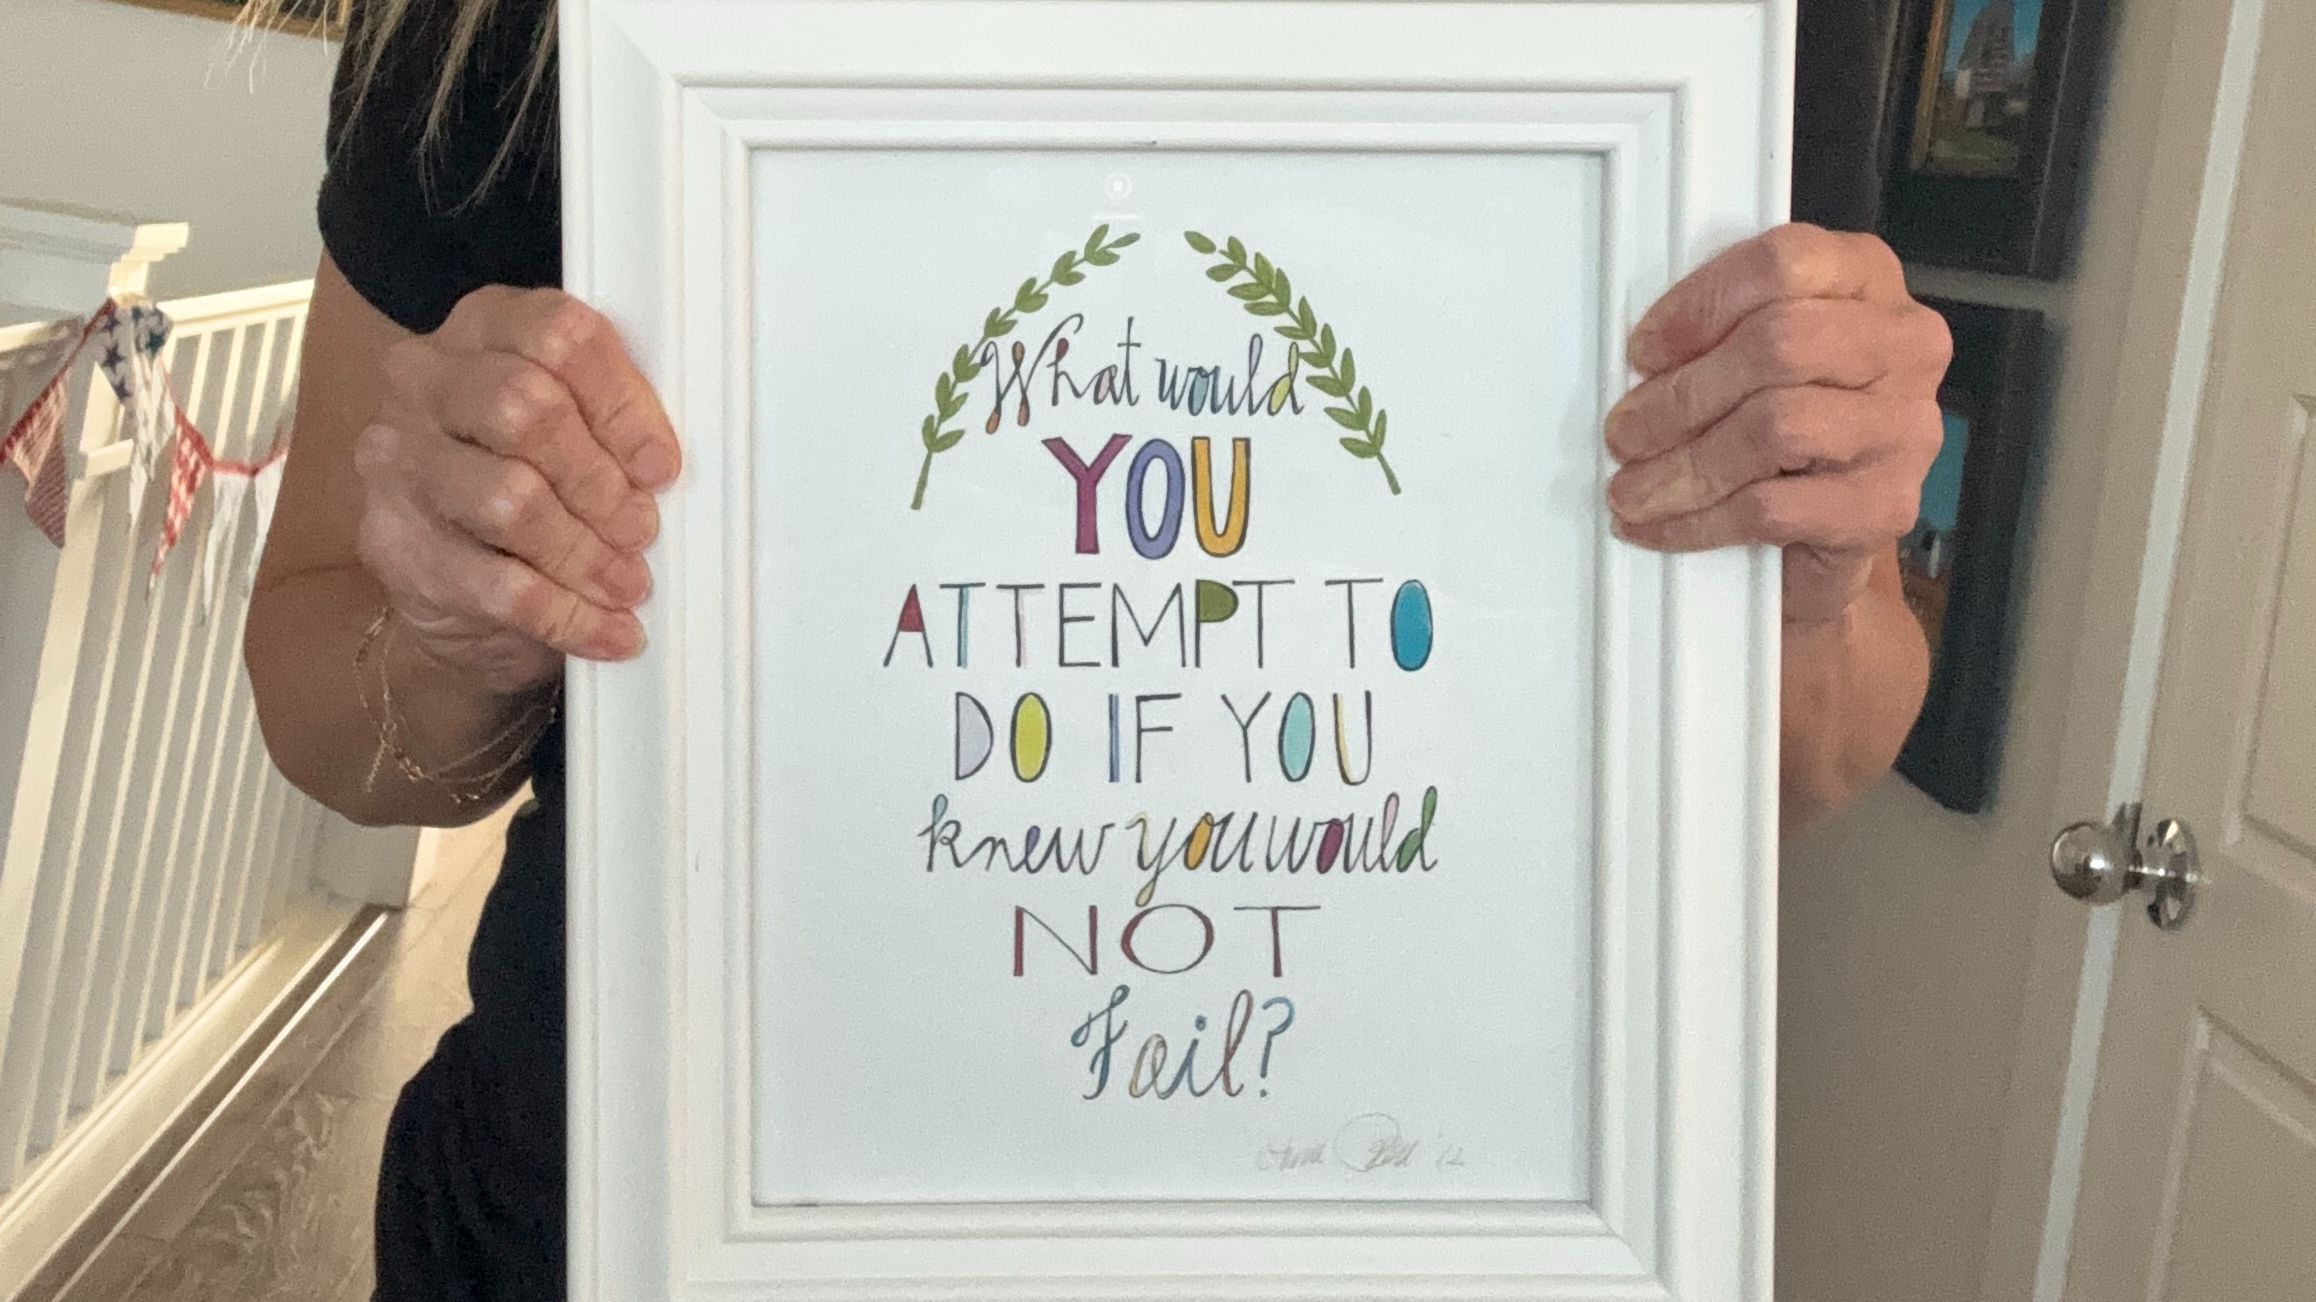 What would
YOU
ATTEMPT TO
DO IF YOU
knew you would
NOT
Fail?
'12